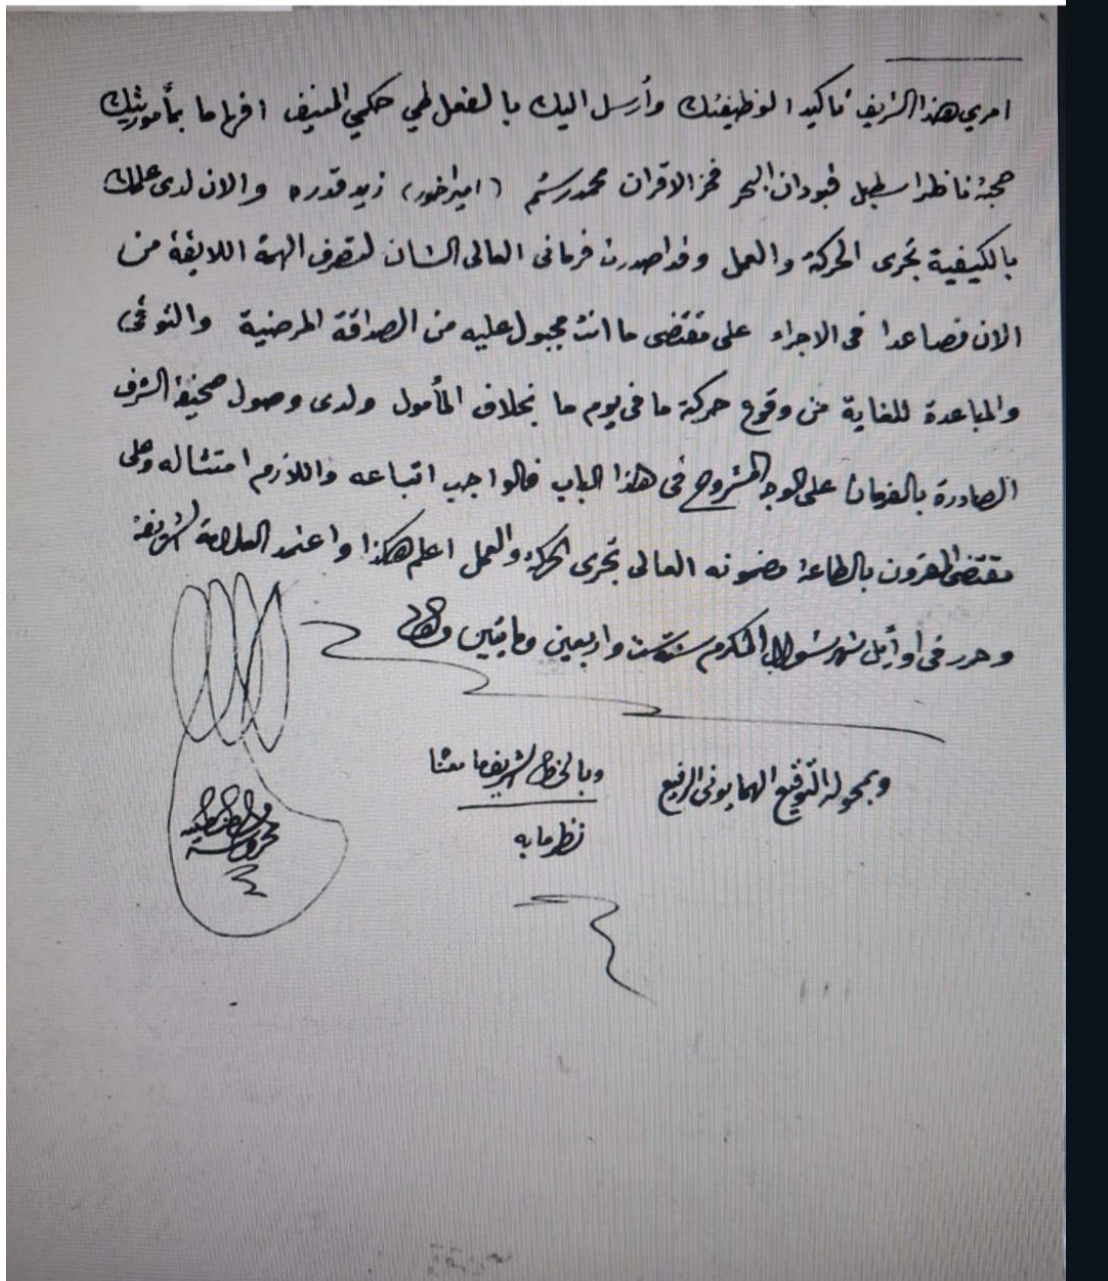 امري هذا الشريف تأكيدا لوظيفتك وأرسل اليك بالفعل طي حكمي المنيف افهاما بمأموريتك
صحبة ناظر اسطبل قبودان البحر فخر الاقران محمد رستم (اميراخور) زيد قدره والان لدى علمك
بالكيفية تجرى الحركة والعمل وقد اصدرت فرمانى العالى الشان لتصرف الهمة اللايقة من
الان فصاعدا فى الاجراء على مقتضى ما انت مجبول عليه من الصداقة المرضية والتوقى
والمباعدة للغاية من وقوع حركة ما فى يوم ما بخلاف المأمول ولدى وصول صحيفة الشرف
الصادرة بالفرمان على الوجه المشروح فى هذا الباب فالواجب اتباعه واللازم امتثاله وعلى
مقتضى المقرون بالطاعة مضمونه العالى تجرى الحركة والعمل اعلم هكذا واعتمد العلامة الشريفة
وحرر فى اوأيل شهر شوال المكرم سنة ست واربعين ومايتين والف
وبمحوله التوقيع الهمايونى الرفيع
وبالخط الشريف ما معنا
نظر مابه
محروسة قسطنطينيه